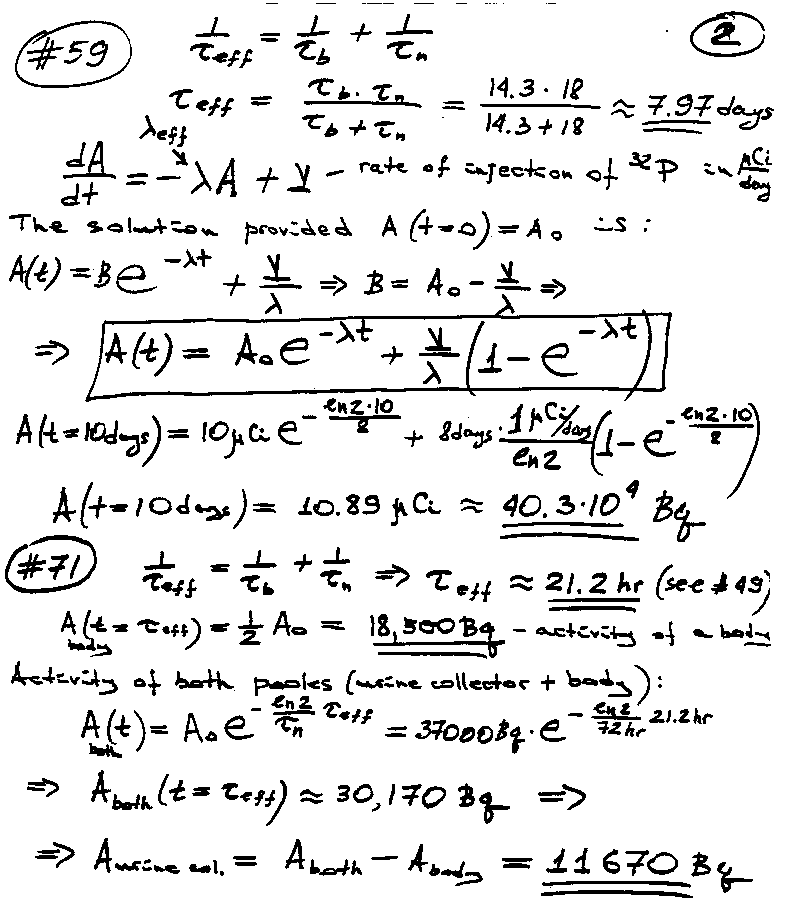 2
#59 1/τeff = 1/τb + 1/τn
τeff = τb · τn / τb + τn = 14.3 · 18 / 14.3 + 18 ≈ 7.97 days
λeff
dA/dt = -λA + γ - rate of injection of ³²P in μCi/day
The solution provided A(t=0) = A₀ is:
A(t) = Be^(-λt) + γ/λ ⇒ B = A₀ - γ/λ ⇒
⇒ A(t) = A₀e^(-λt) + γ/λ (1 - e^(-λt))
A(t=10days) = 10μCi e^(-ln2·10/8) + 8days · 1μCi/day / ln2 (1 - e^(-ln2·10/8))
A(t=10days) = 10.89 μCi ≈ 40.3·10⁴ Bq
#71 1/τeff = 1/τb + 1/τn ⇒ τeff ≈ 21.2 hr (see #49)
A body (t = τeff) = 1/2 A₀ = 18,500 Bq - activity of a body
Activity of both pooles (urine collector + body):
A both (t) = A₀e^(-ln2/τn τeff) = 37000Bq · e^(-ln2/72hr 21.2hr)
⇒ A both (t = τeff) ≈ 30,170 Bq ⇒
⇒ A urine col. = A both - A body = 11670 Bq